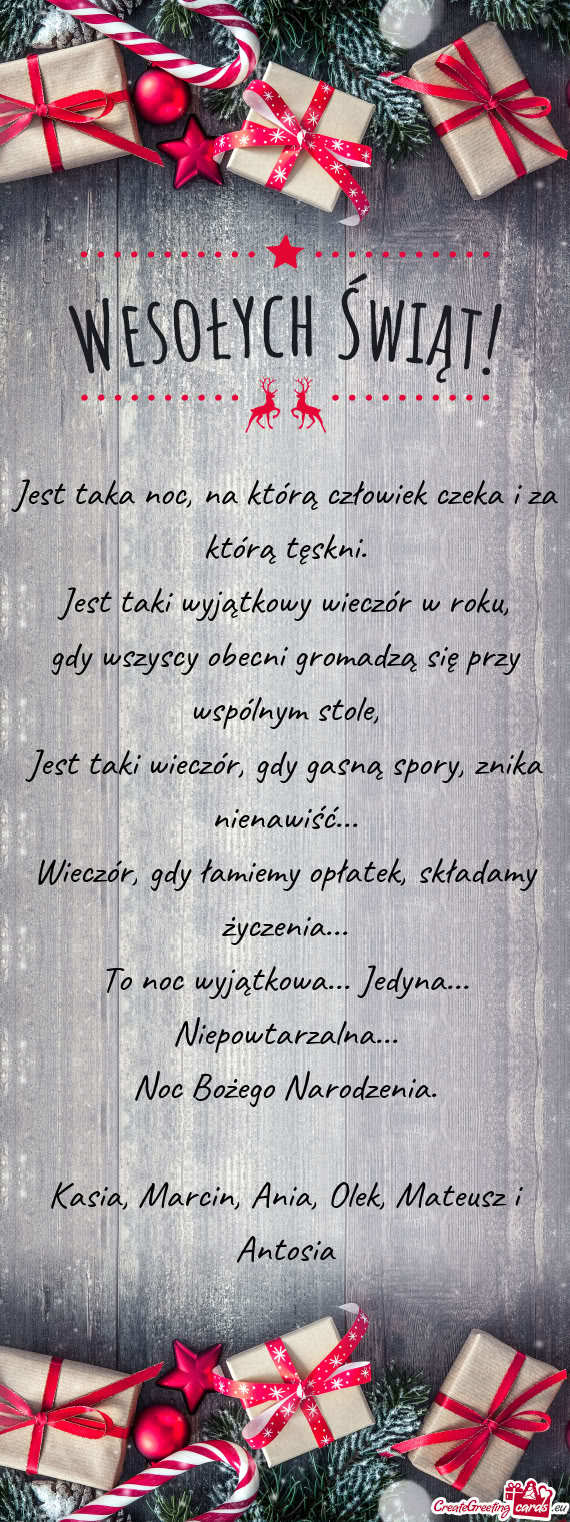 Wesołych Świąt!
Jest taka noc, na którą człowiek czeka i za
którą tęskni.
Jest taki wyjątkowy wieczór w roku,
gdy wszyscy obecni gromadzą się przy
wspólnym stole,
Jest taki wieczór, gdy gasną spory, znika
nienawiść...
Wieczór, gdy łamiemy opłatek, składamy
życzenia...
To noc wyjątkowa... Jedyna...
Niepowtarzalna...
Noc Bożego Narodzenia.
Kasia, Marcin, Ania, Olek, Mateusz i
Antosia
CreateGreetingcards.eu